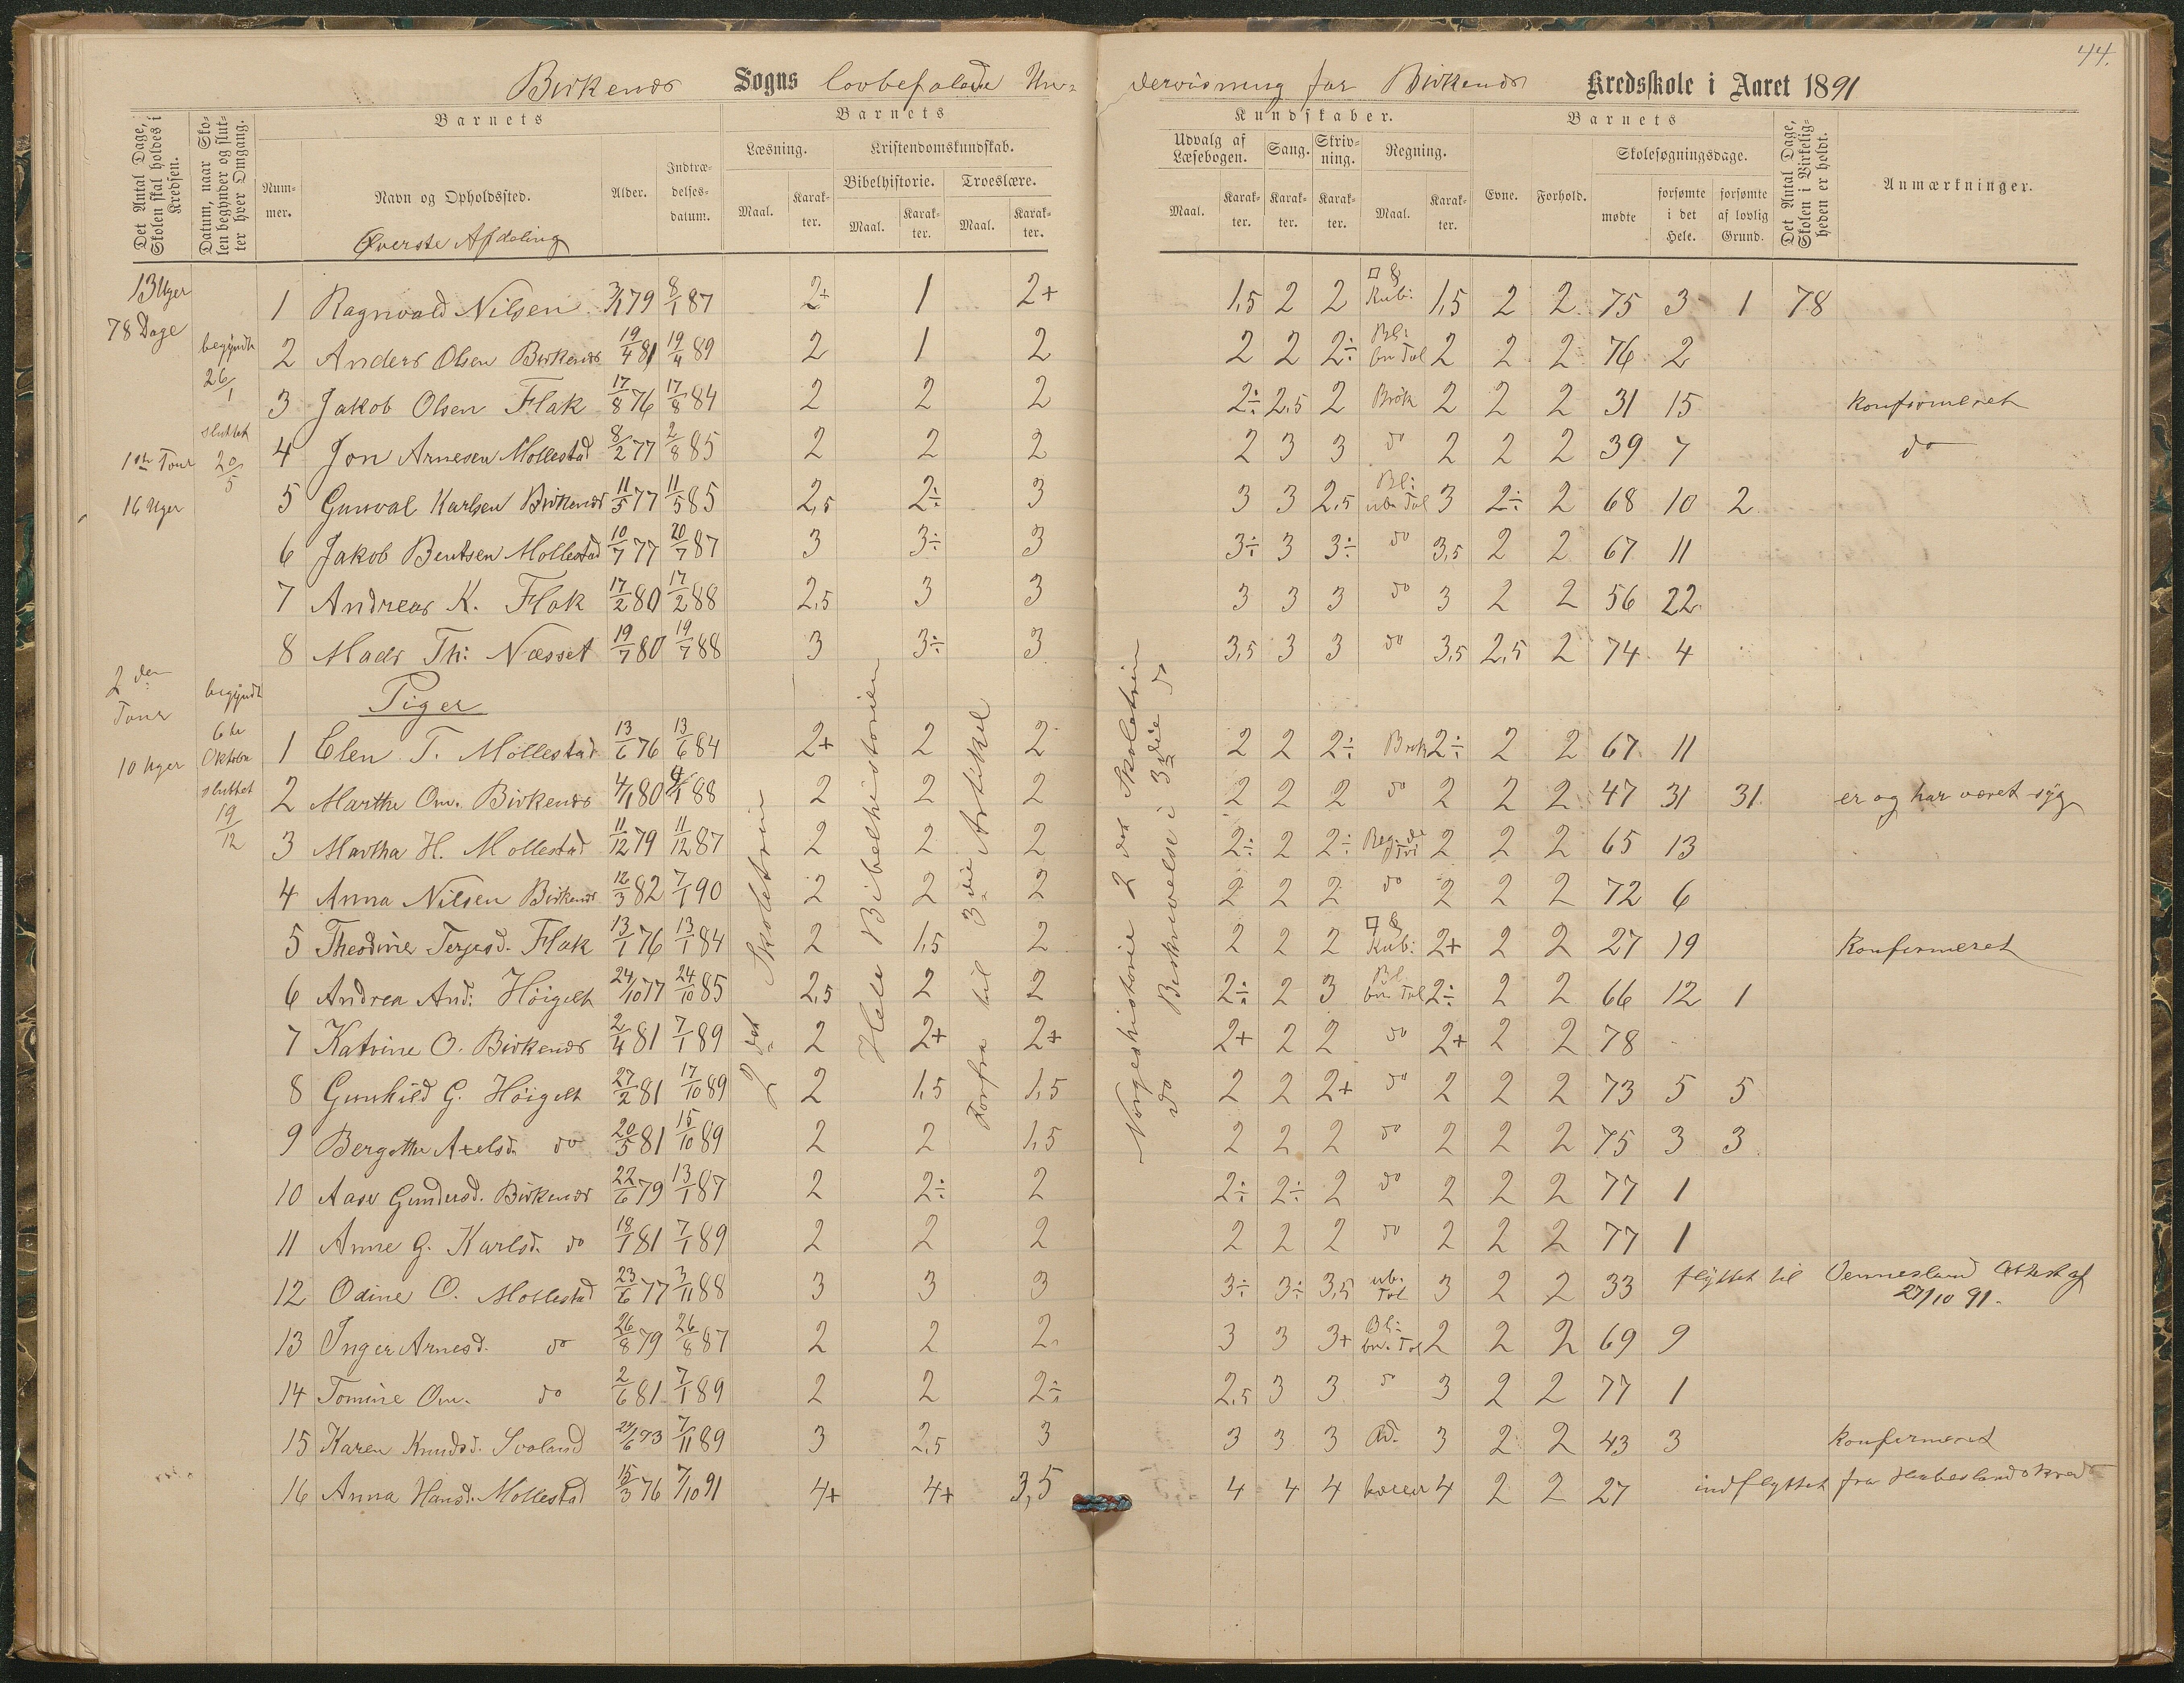 44.
Birkenæs Sogns lovbefalede Un- dervisning for Birkenæs Kredsskole i Aaret 1891
Det Antal Dage, Skolen skal holdes i Kredsen.
Datum, naar Skolen begynder og slutter hver Omgang.
Barnets
Nummer.
Navn og Opholdssted.
Øverste Afdeling
Alder.
Indtrædelsesdatum.
Barnets
Læsning.
Maal.
Karakter.
Kristendomskundskab.
Bibelhistorie.
Maal.
Karakter.
Troeslære.
Maal.
Karakter.
Kundskaber.
Udvalg af Læsebogen.
Maal.
Karakter.
Sang.
Karakter.
Skrivning.
Karakter.
Regning.
Maal.
Karakter.
Barnets
Evne.
Forhold.
Skolesøgningsdage.
mødte
forsømte i det Hele.
forsømte af lovlig Grund.
Det Antal Dage, Skolen i Virkeligheden er holdt.
Anmærkninger.
13 Uger
78 Dage
begyndt
26/1
sluttet
20/5
1ste Tour
16 Uger
2den
Tour
10 Uger
begyndt
6te
Oktober
sluttet
19/12
1 Ragnvald Nilsen 3/1 79 8/1 87 2+ 1 2+ 1,5 2 2 □ § Kub: 1,5 2 2 75 3 1 78
2 Anders Olsen Birkenæs 19/4 81 19/4 89 2 1 2 2 2 2÷ Bl: bn Tal 2 2 2 76 2
3 Jakob Olsen Flak 17/8 76 17/8 84 2 2 2 2÷ 2,5 2 Brök 2 2 2 31 15 konfirmeret
4 Jon Arnesen Mollestad 8/2 77 2/8 85 2 2 2 2 3 3 do 2 2 2 39 7 do
5 Gunval Karlsen Birkenæs 11/5 77 11/5 85 2,5 2÷ 3 3 3 2,5 Bl: ubn Tal 3 2÷ 2 68 10 2
6 Jakob Bentsen Mollestad 10/7 77 20/7 87 3 3÷ 3 3÷ 3 3÷ do 3,5 2 2 67 11
7 Andreas K. Flak 17/2 80 17/2 88 2,5 3 3 3 3 3 do 3 2 2 56 22
8 Mads Th: Næsset 19/7 80 19/7 88 3 3÷ 3 3,5 3 3 do 3,5 2,5 2 74 4
Piger
1 Elen T. Möllestad 13/6 76 13/6 84 2+ 2 2 2 2 2÷ Brök 2÷ 2 2 67 11
2 Marthe Om. Birkenæs 4/1 80 4/1 88 2 2 2 2 2 2 do 2 2 2 47 31 31 er og har været syg
3 Martha H. Mollestad 11/12 79 11/12 87 2 2 2 2÷ 2 2÷ Reg: de Tri 2 2 2 65 13
4 Anna Nilsen Birkenæs 12/3 82 7/1 90 2 2 2 2 2 2 do 2 2 2 72 6
5 Theodine Terjesd. Flak 13/1 76 13/1 84 2 1,5 2 2 2 2 □ § Kub: 2+ 2 2 27 19 Konfirmeret
6 Andrea And: Höigelt 24/10 77 24/10 85 2,5 2 2 2÷ 2 3 Bl. bn Tal 2÷ 2 2 66 12 1
7 Katrine O. Birkenæs 2/4 81 7/1 89 2 2+ 2+ 2+ 2 2 do 2+ 2 2 78
8 Gunhild G. Höigelt 27/2 81 17/10 89 2 1,5 1,5 2 2 2+ do 2 2 2 73 5 5
9 Bergitte Axelsd. do 20/5 81 15/10 89 2 2 1,5 2 2 2 do 2 2 2 75 3 3
10 Aase Gundersd. Birkenæs 22/6 79 13/1 87 2 2÷ 2 2÷ 2÷ 2 do 2 2 2 77 1
11 Anne G. Karlsd. do 18/1 81 7/1 89 2 2 2 2 2 2 do 2 2 2 77 1
12 Odine O. Mollestad 23/6 77 3/11 88 3 3 3 3÷ 3÷ 3,5 ub. Tal 3 2 2 33 flyttet til Vennesland Attest af 27/10 91.
13 Inger Arnesd. do 26/8 79 26/8 87 2 2 2 3 3 3+ Bl: bn. Tal 2 2 2 69 9
14 Tomine Om. do 2/6 81 7/1 89 2 2 2÷ 2,5 3 3 do 3 2 2 77 1
15 Karen Knudsd. Svaland 24/6 73 7/11 89 3 2,5 3 3 3 3 Ad. 3 2 2 43 3 konfirmeret
16 Anna Hansd. Mollestad 15/3 76 7/10 91 4+ 4+ 3,5 4 4 4 4 2 2 27 indflyttet fra
2det Skoletrin
Hele Bibelhistorien
Forfra til 3die Artikel
Norgeshistorie 2det Skoletrin
do Beskrivelse i 3die do